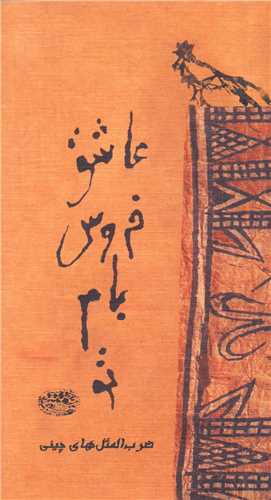 عاشق
خروس
بام
تو
ضرب‌المثل‌های چینی